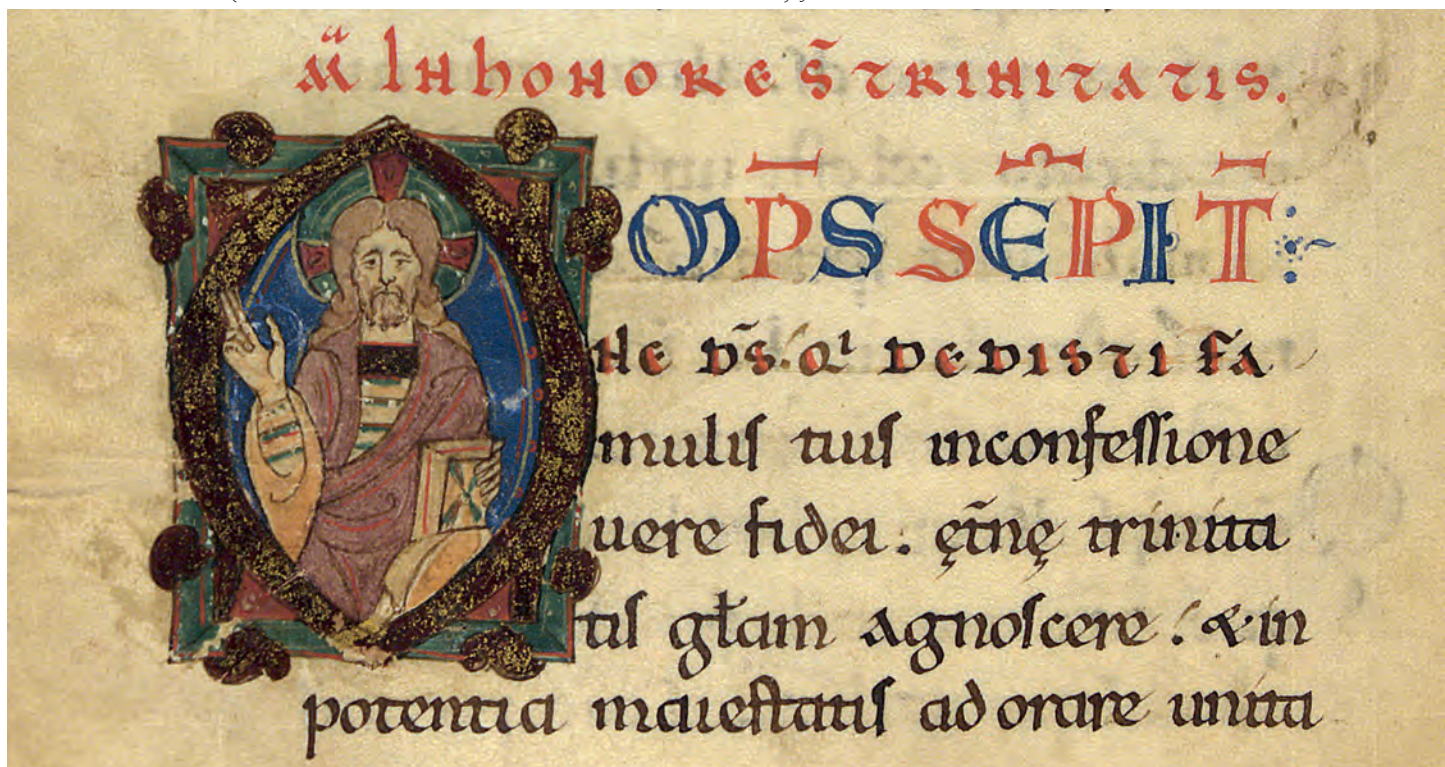 M̃ IN hONORE S̃ TRINITATIS.
OMP̄S SẼPIT̄:
NE D̄S. Qͥ DEDISTI FA
mulis tuis inconfessione
uere fidei. ęt̄nę trinita
tis gl̄am agnoscere. & in
potentia maiestatis adorare unita